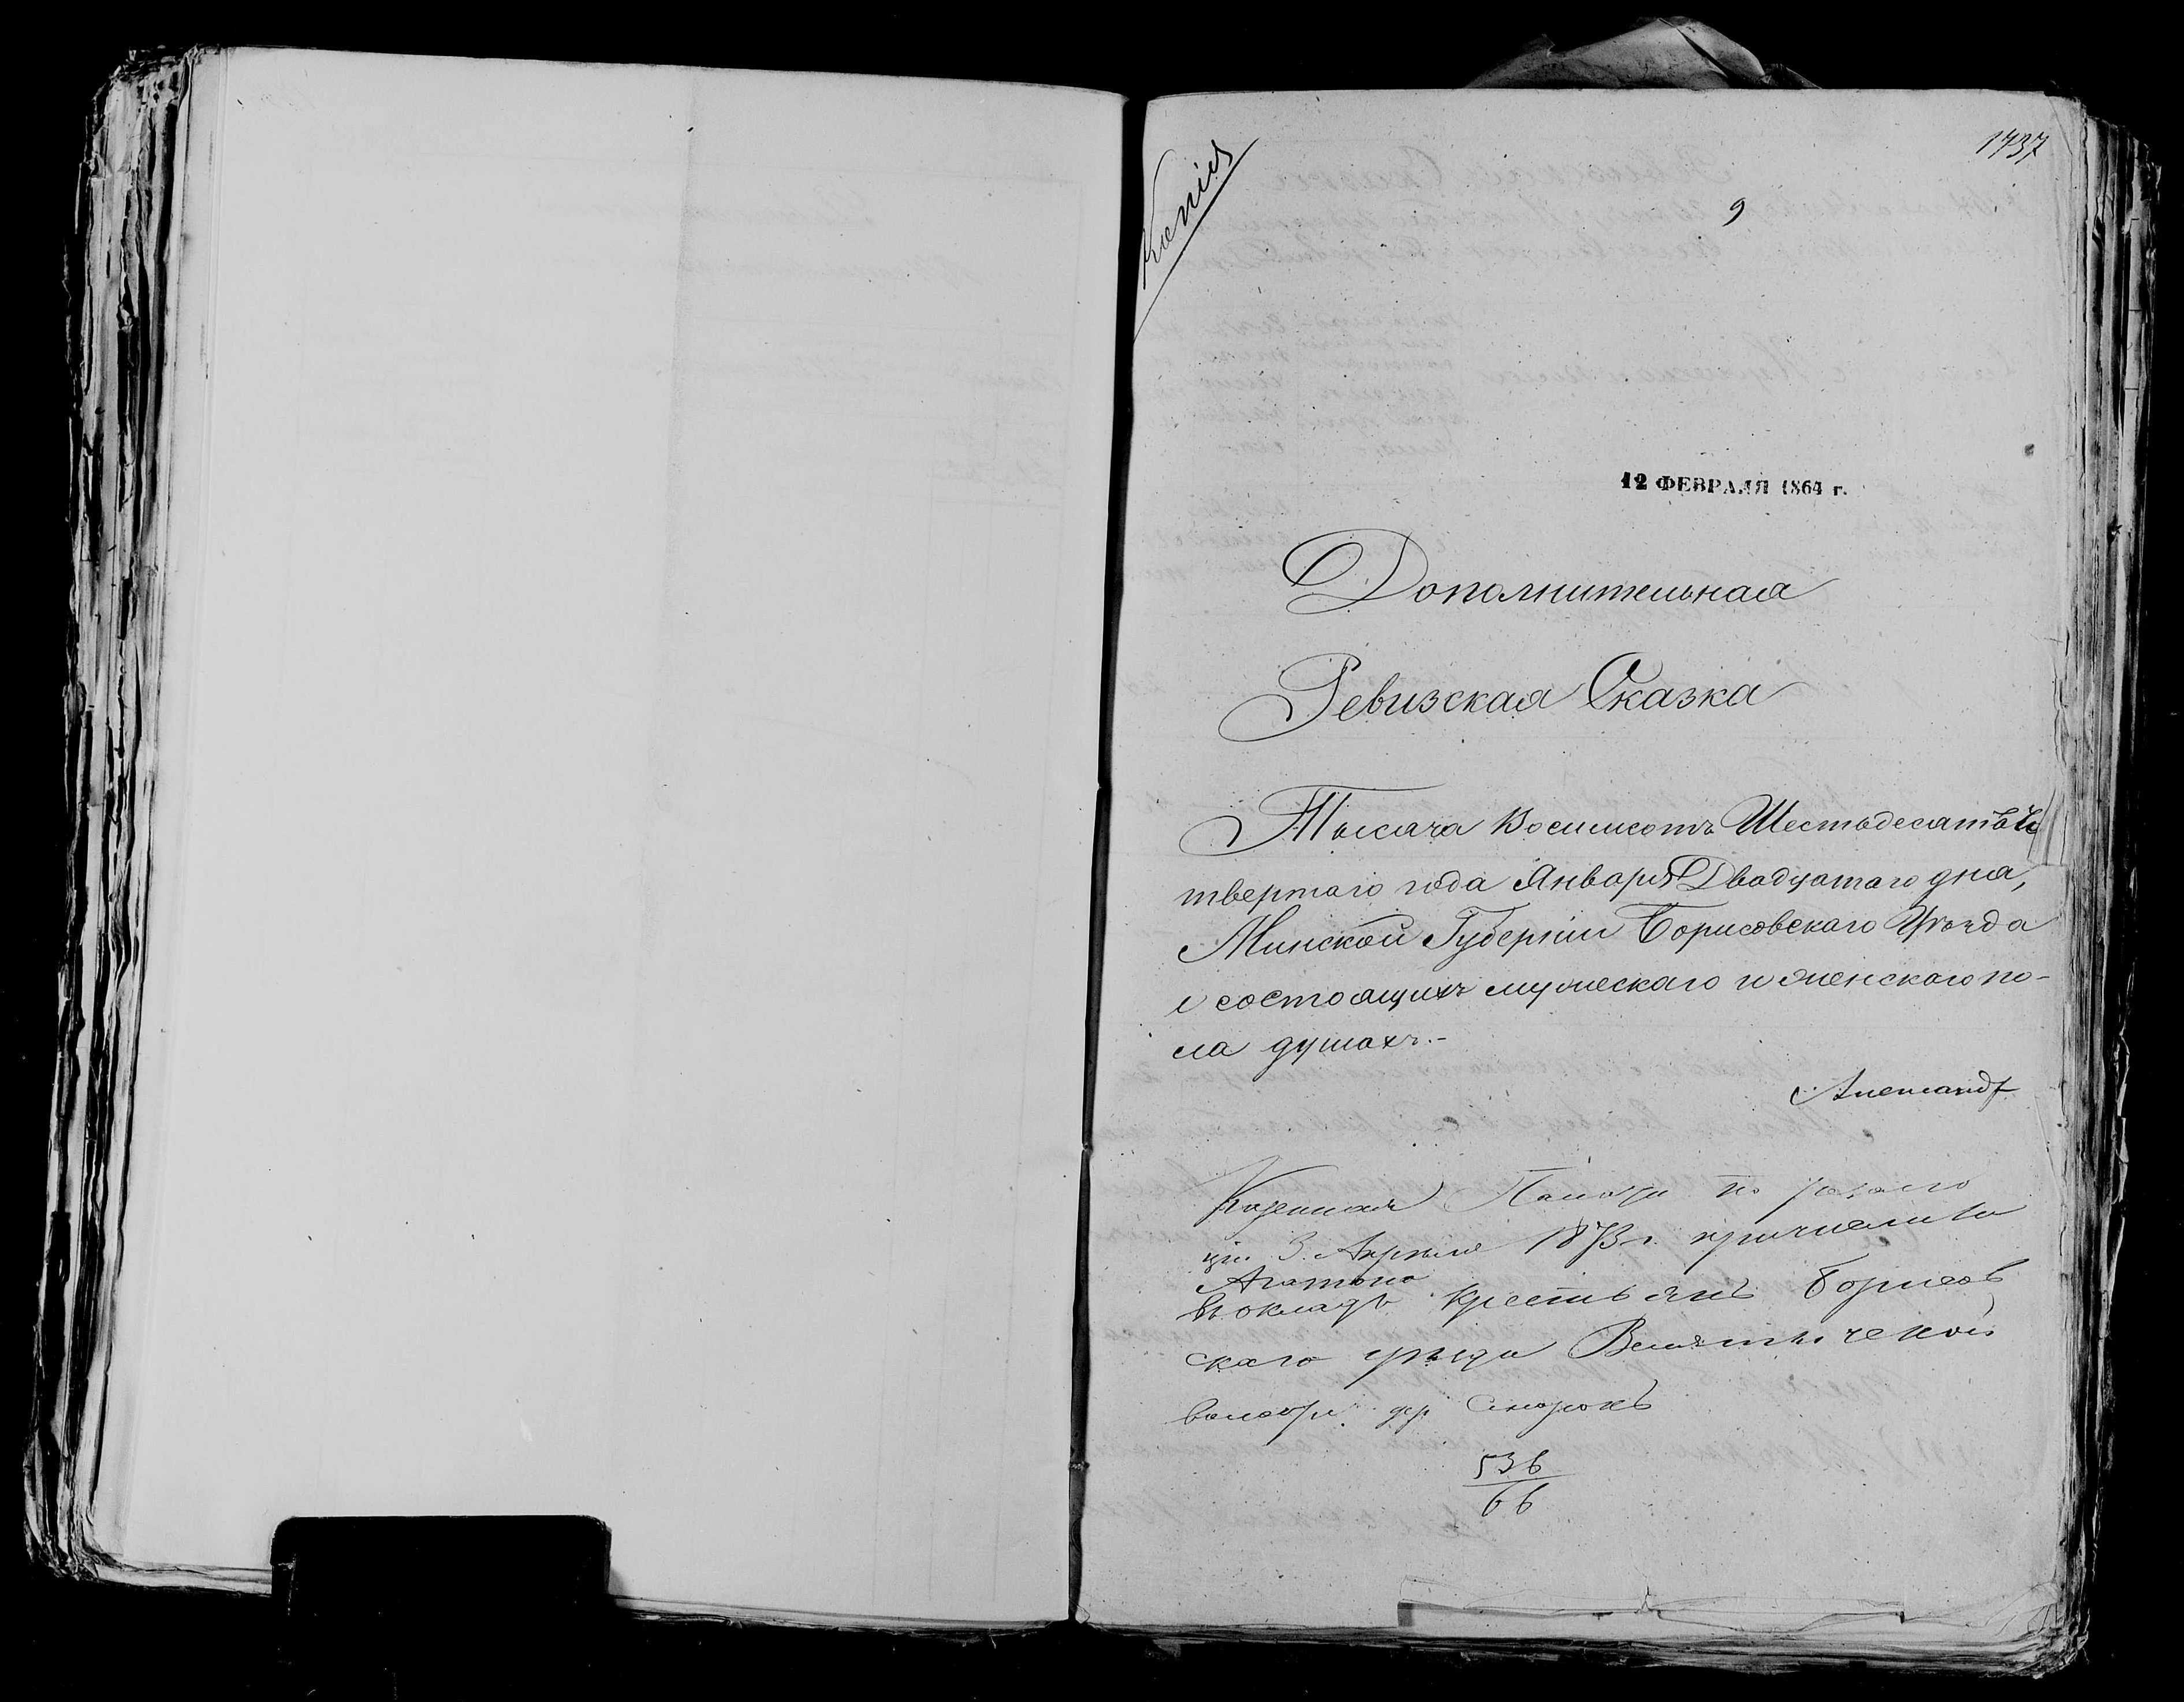 1737
9
12 ФЕВРАЛЯ 1864 г.
Дополнительная
Ревизская Сказка
Тысяча Восимсотъ Шестьдесятъ Че
твертаго года Января Двадцатаго дня,
Минской Губерніи Борисовскаго Уѣзда
о состоящихъ мужескаго и женскаго по-
ла душахъ.-
Казенная Палата по резолю
ціи 3. Апрѣля 1873 г. причислила
въ окладъ крестьянъ Борисов
скаго уѣзда Велятичской
волости дер
536
66